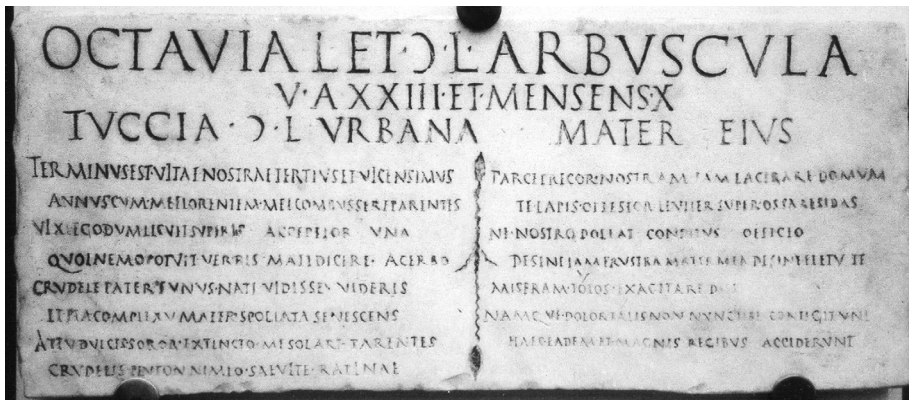 OCTAVIA · L · ET · Ɔ · L · ARBVSCVLA
V · A · XXIII · ET · MENSENS · X
TVCCIA · Ɔ · L · VRBANA MATER EIVS
TERMINVS EST VITAE NOSTRAE TERTIVS ET VICENSIMVS
ANNVS CVM ME FLORENTEM MEI COMBVSSERE PARENTES
VIXI EGO DVM LICVIT SVPERIS ACCEPTIOR VNA
QVOI NEMO POTVIT VERBIS MALEDICERE ACERBO
CRVDELE PATER FVNVS NATI VIDISSE VIDERIS
ET PIA MATER SPOLIATA SENESCENS
AT TV DVLCIS SOROR EXTINCTO ME SOLARE PARENTES
CRVDELIS
PARCE PRECOR NOSTRAM IAM LACERARE DOMVM
TE LAPIS OPTESTOR LEVITER SVPER OSSA RESIDAS
NE NOSTRO DOLEAT CONDITVS OFFICIO
DESINE IAM FRVSTRA MATER MEA DESINE FLETV TE
MISERAM TOTOS EXAGITARE
NAMQVE DOLOR TALIS NON NVNC TIBI CONTIGIT VNI
HAEC EADEM ET MAGNIS REGIBVS ACCIDERVNT